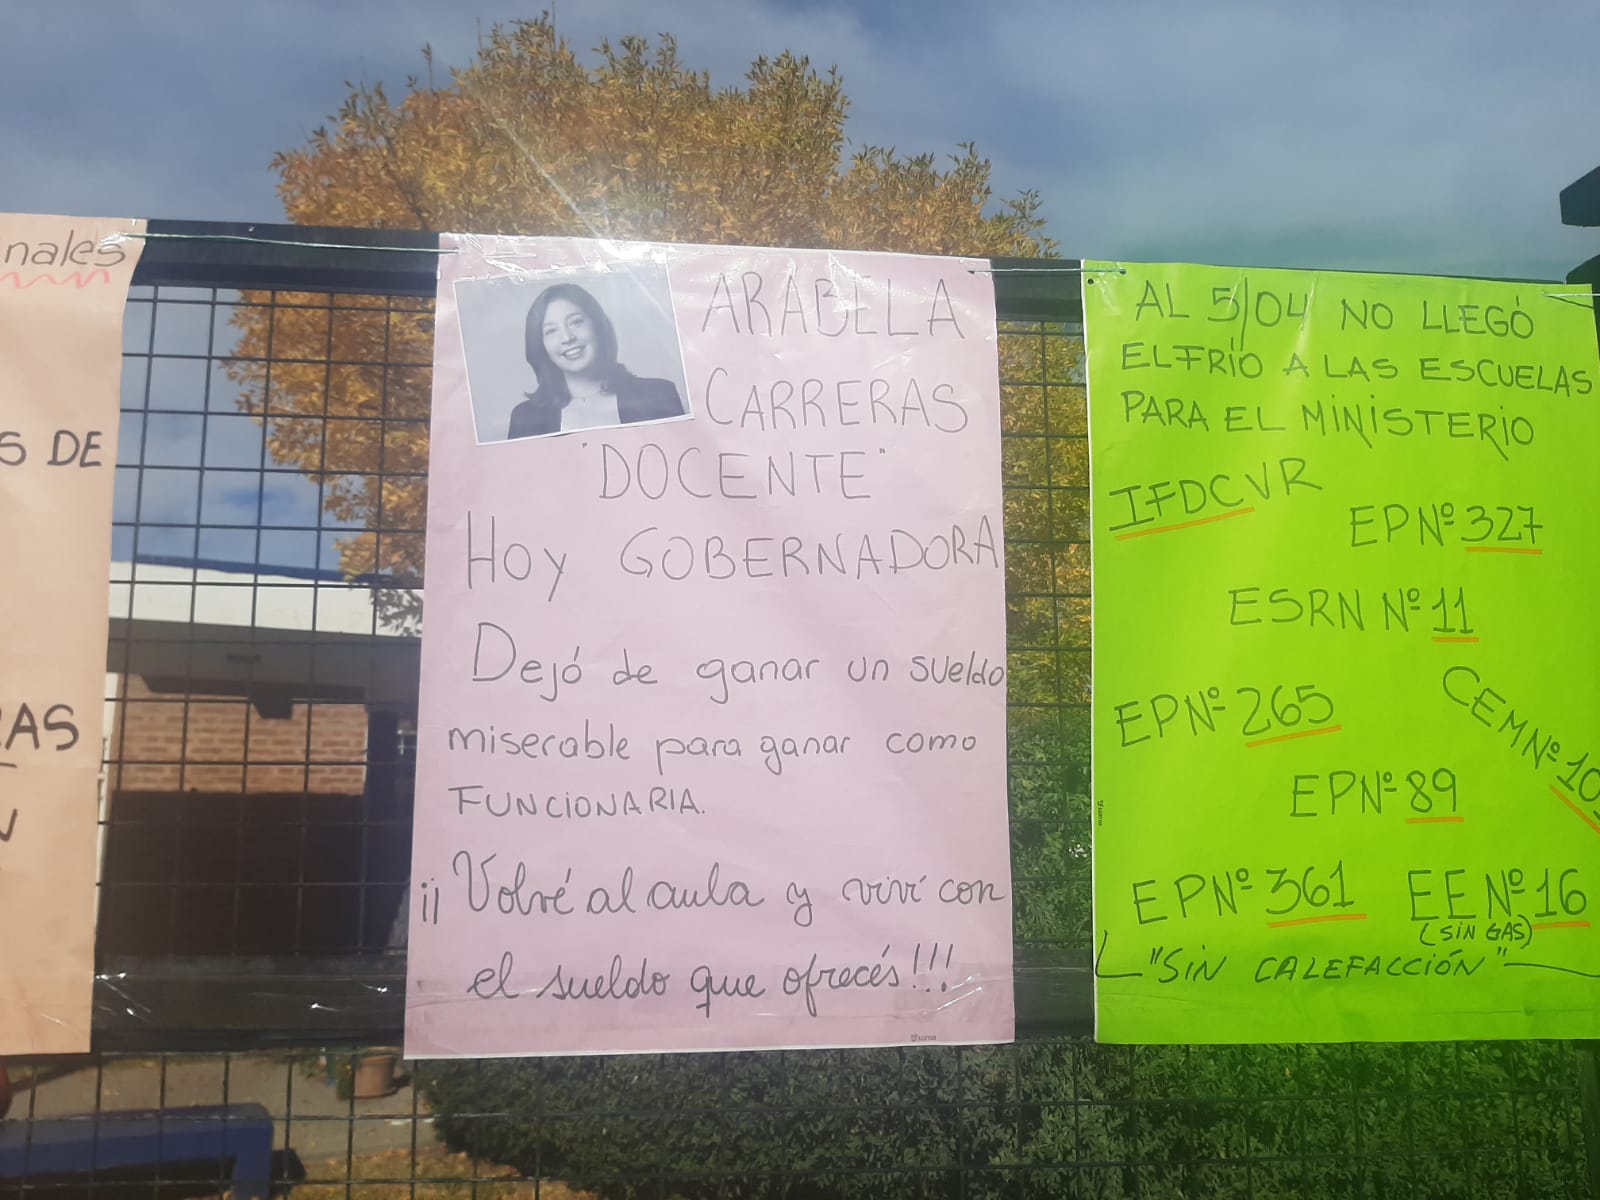 nales
S DE
RAS
ARABELA
CARRERAS
"DOCENTE"
HOY GOBERNADORA
Dejó de ganar un sueldo
miserable para ganar como
FUNCIONARIA.
¡¡ Volvé al aula y viví con
el sueldo que ofrecés!!!
AL 5/04 NO LLEGÓ
EL FRÍO A LAS ESCUELAS
PARA EL MINISTERIO
IFDCVR
EP Nº 327
ESRN Nº 11
EP Nº 265
CEM Nº 10
EP Nº 89
EP Nº 361
EE Nº 16
(SIN GAS)
"SIN CALEFACCIÓN"